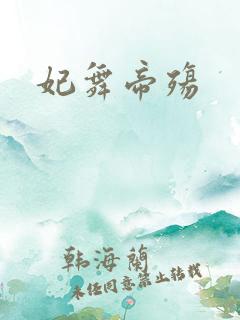 妃舞帝殇
韩海兰
未经同意禁止转载